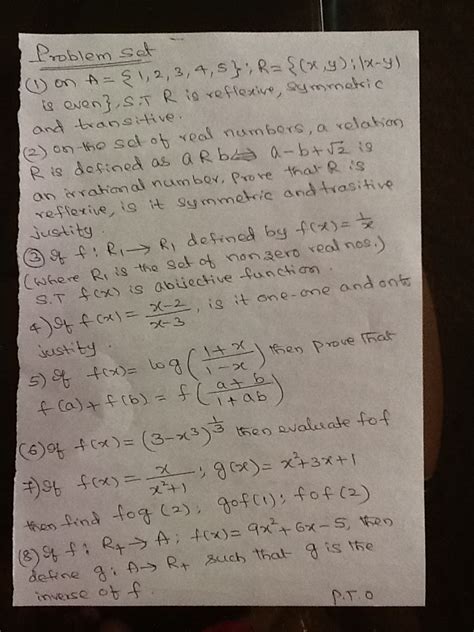 Problem set
(1) on A = {1, 2, 3, 4, 5}; R = {(x, y); |x-y|
is even}, S.T R is reflexive, symmetric
and transitive.
(2) on the set of real numbers, a relation
R is defined as a R b ⇔ a - b + √2 is
an irrational number, Prove that R is
reflexive, is it symmetric and trasitive
justity.
(3) If f : R₁ → R₁ defined by f(x) = 1/x
(where R₁ is the set of non zero real nos.)
S.T f(x) is abijective function.
4) If f(x) = (x-2)/(x-3), is it one-one and onto
justity.
5) If f(x) = log((1+x)/(1-x)) then prove that
f(a) + f(b) = f((a+b)/(1+ab))
(6) If f(x) = (3-x³)^(1/3) then evaluate fof
7) If f(x) = x/(x²+1); g(x) = x²+3x+1
then find fog(2); gof(1); fof(2)
(8) If f : R₊ → A; f(x) = 9x²+6x-5, then
define g : A → R₊ such that g is the
inverse of f.
P.T.O